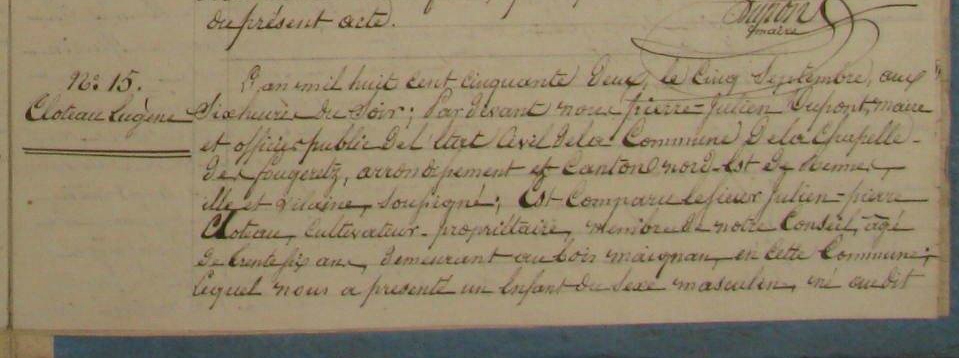 du présent acte.
Dupont
maire
N° 15.
Cloteau Eugène
L'an mil huit cent cinquante deux, le cinq Septembre, aux
Six heures du Soir; Par devant nous Pierre-Julien Dupont, maire
et officier public de l'état Civil de la Commune de la Chapelle-
des fougeretz, arrondissement et Canton nord-Est de Rennes,
ille et Vilaine, soussigné; Est Comparu le sieur Julien-pierre
Cloteau, Cultivateur-propriétaire, membre de notre Conseil, âgé
de trente six ans, demeurant au bois maignan, en cette Commune;
Lequel nous a présenté un Enfant du Sexe masculin, né au dit